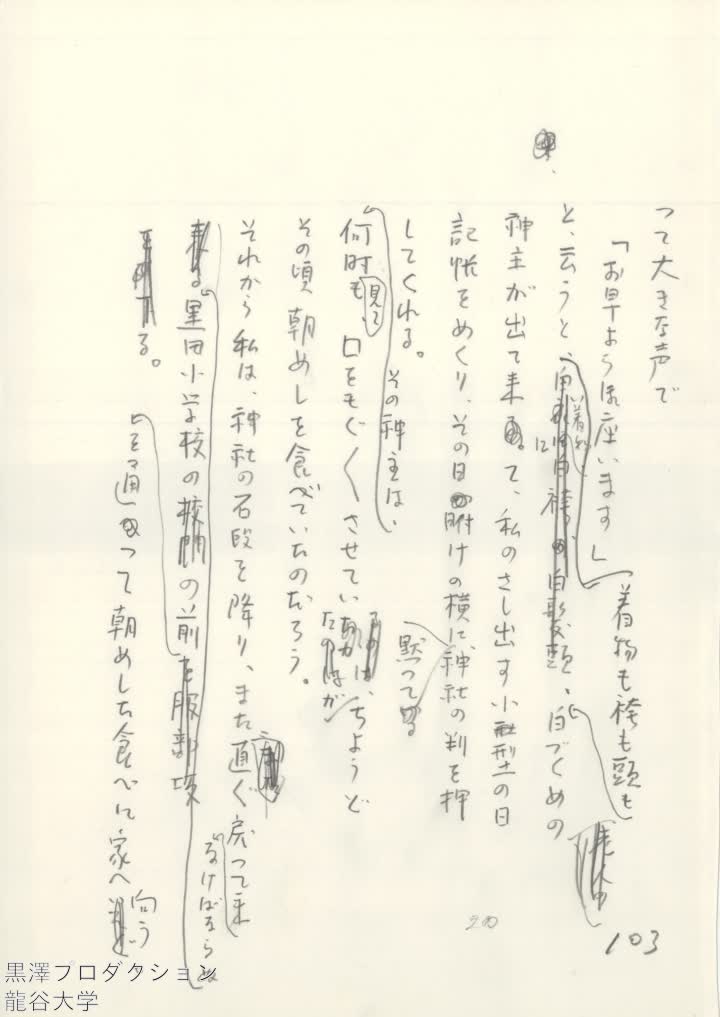 って大きな声で
「お早ようほ座います」
着物も袴も頭も
と、云うと、白づくめの
神主が出て来て、私のさし出す小型の日
記帳をめくり、その日附けの横に、神社の判を押
黙って
してくれる。その神主は、
何時見ても、口をもぐ〱させてい
たのはが
ちようど
その頃朝めしを食べていたのだろう。
それから私は、神社の石段を降り、また直ぐ戻って来
なければならぬ
黒田小学校の
の前
を通って朝めしを食べに家へ
向う
る。
200
103
黒澤プロダクション
龍谷大学